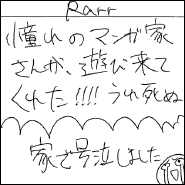 Rarr
憧れのマンガ家
さんが、遊び来て
くれた!!!!うれ死ぬ
家で号泣しました